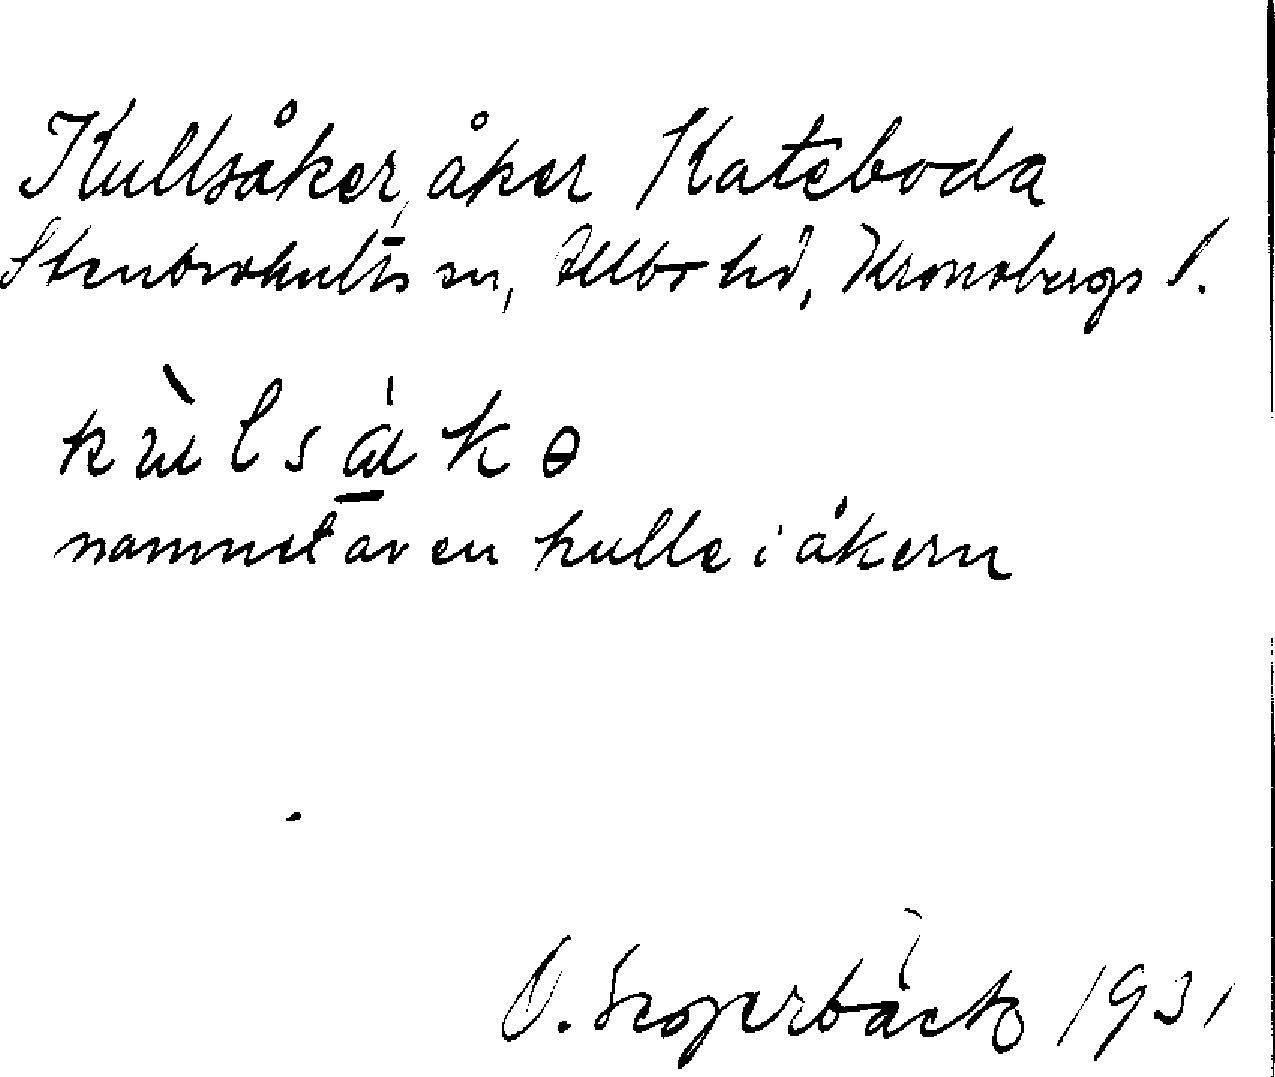 Kullsåker, åker Kateboda
Stenbrohults sn, Allbo hd, Kronobergs l.
kùlsåkə
namnet av en kulle i åkern
O. Segerbäck 1931